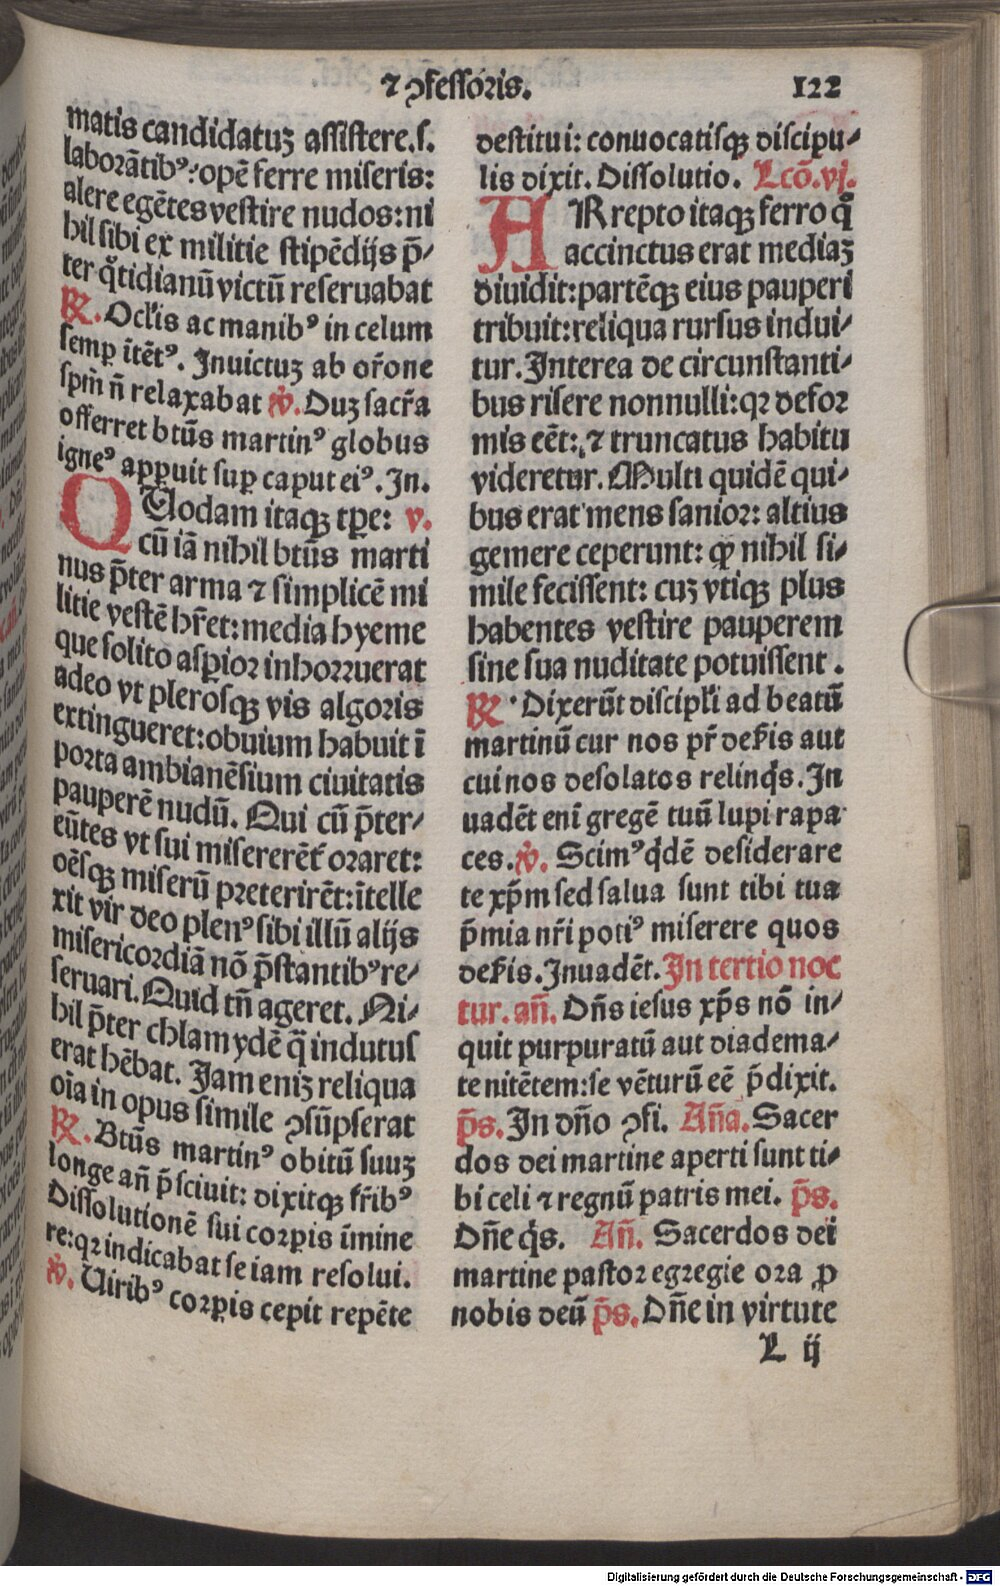 ⁊ ꝯfessoris. 122
matis candidatuꝫ assistere.s.
laborātibꝰ: opē ferre miseris:
alere egētes vestire nudos: ni
hil sibi ex militie stipēdijs p̄⸗
ter qͦtidianū victū reseruabat
℟. Ocl̓is ac manibꝰ in celum
semꝑ ītētꝰ. Inuictuꝫ ab or̄one
spm̄ n̄ relaxabat ℣. Duꝫ sacr̄a
offerret btūs martinꝰ globus
igneꝰ apꝑuit suꝑ caput eiꝰ. In.
QUodam itaqꝫ tꝑe: v.
cū iā nihil btūs marti
nus p̄ter arma ⁊ simplicē mi
litie vestē hr̄et: media hyeme
que solito asꝑior inhorruerat
adeo vt plerosqꝫ vis algoris
extingueret: obuium habuit ī
porta ambianēsium ciuitatis
pauperē nudū. Qui cū p̄ter⸗
eūtes vt sui misererēt̄ oraret:
oēsqꝫ miserū preterirēt: ītelle
xit vir deo plenꝰ sibi illū alijs
misericordiā nō p̄stantibꝰ re⸗
seruari. Quid tn̄ ageret. Ni⸗
hil p̄ter chlamydē q̄ indutus
erat hēbat. Jam eniꝫ reliqua
oīa in opus simile ꝯsūpserat
℟. Btūs martinꝰ obitū suuꝫ
longe an̄ p̄sciuit: dixitqꝫ fr̄ibꝰ
Dissolutionē sui corꝑis īmine
re: qꝛ indicabat se iam resolui.
℣. Uiribꝰ corꝑis cepit repēte
destitui: conuocatisqꝫ discipu⸗
lis dixit. Dissolutio. Lcō.vj.
ARrepto itaqꝫ ferro qͦ
accinctus erat mediaꝫ
diuidit: partēqꝫ eius pauperi
tribuit: reliqua rursus indui⸗
tur. Interea de circunstanti⸗
bus risere nonnulli: qꝛ defor
mis eēt: ⁊ truncatus habitu
videretur. Multi quidē qui⸗
bus erat mens sanior: altius
gemere ceperunt: ꝙ nihil si⸗
mile fecissent: cuꝫ vtiqꝫ plus
habentes vestire pauperem
sine sua nuditate potuissent.
℟. Dixerūt discipl̓i ad beatū
martinū cur nos pr̄ deẜis aut
cui nos desolatos relinq̄s. In
uadēt eni gregē tuū lupi rapa
ces. ℣. Scimꝰ qͥdē desiderare
te xp̄m sed salua sunt tibi tua
p̄mia nr̄i potiꝰ miserere quos
deẜis. Inuadēt. In tertio noc
tur. an̄. Dn̄s iesus xp̄s nō in⸗
quit purpuratū aut diadema⸗
te nitētem: se vēturū eē p̄dixit.
p̄s. In dn̄o ꝯfi. An̄a. Sacer
dos dei martine aperti sunt ti⸗
bi celi ⁊ regnū patris mei. p̄s.
Dn̄e q̄s. An̄. Sacerdos dei
martine pastor egregie ora ꝓ
nobis deū p̄s. Dn̄e in virtute
L ij
Digitalisierung gefördert durch die Deutsche Forschungsgemeinschaft - DFG